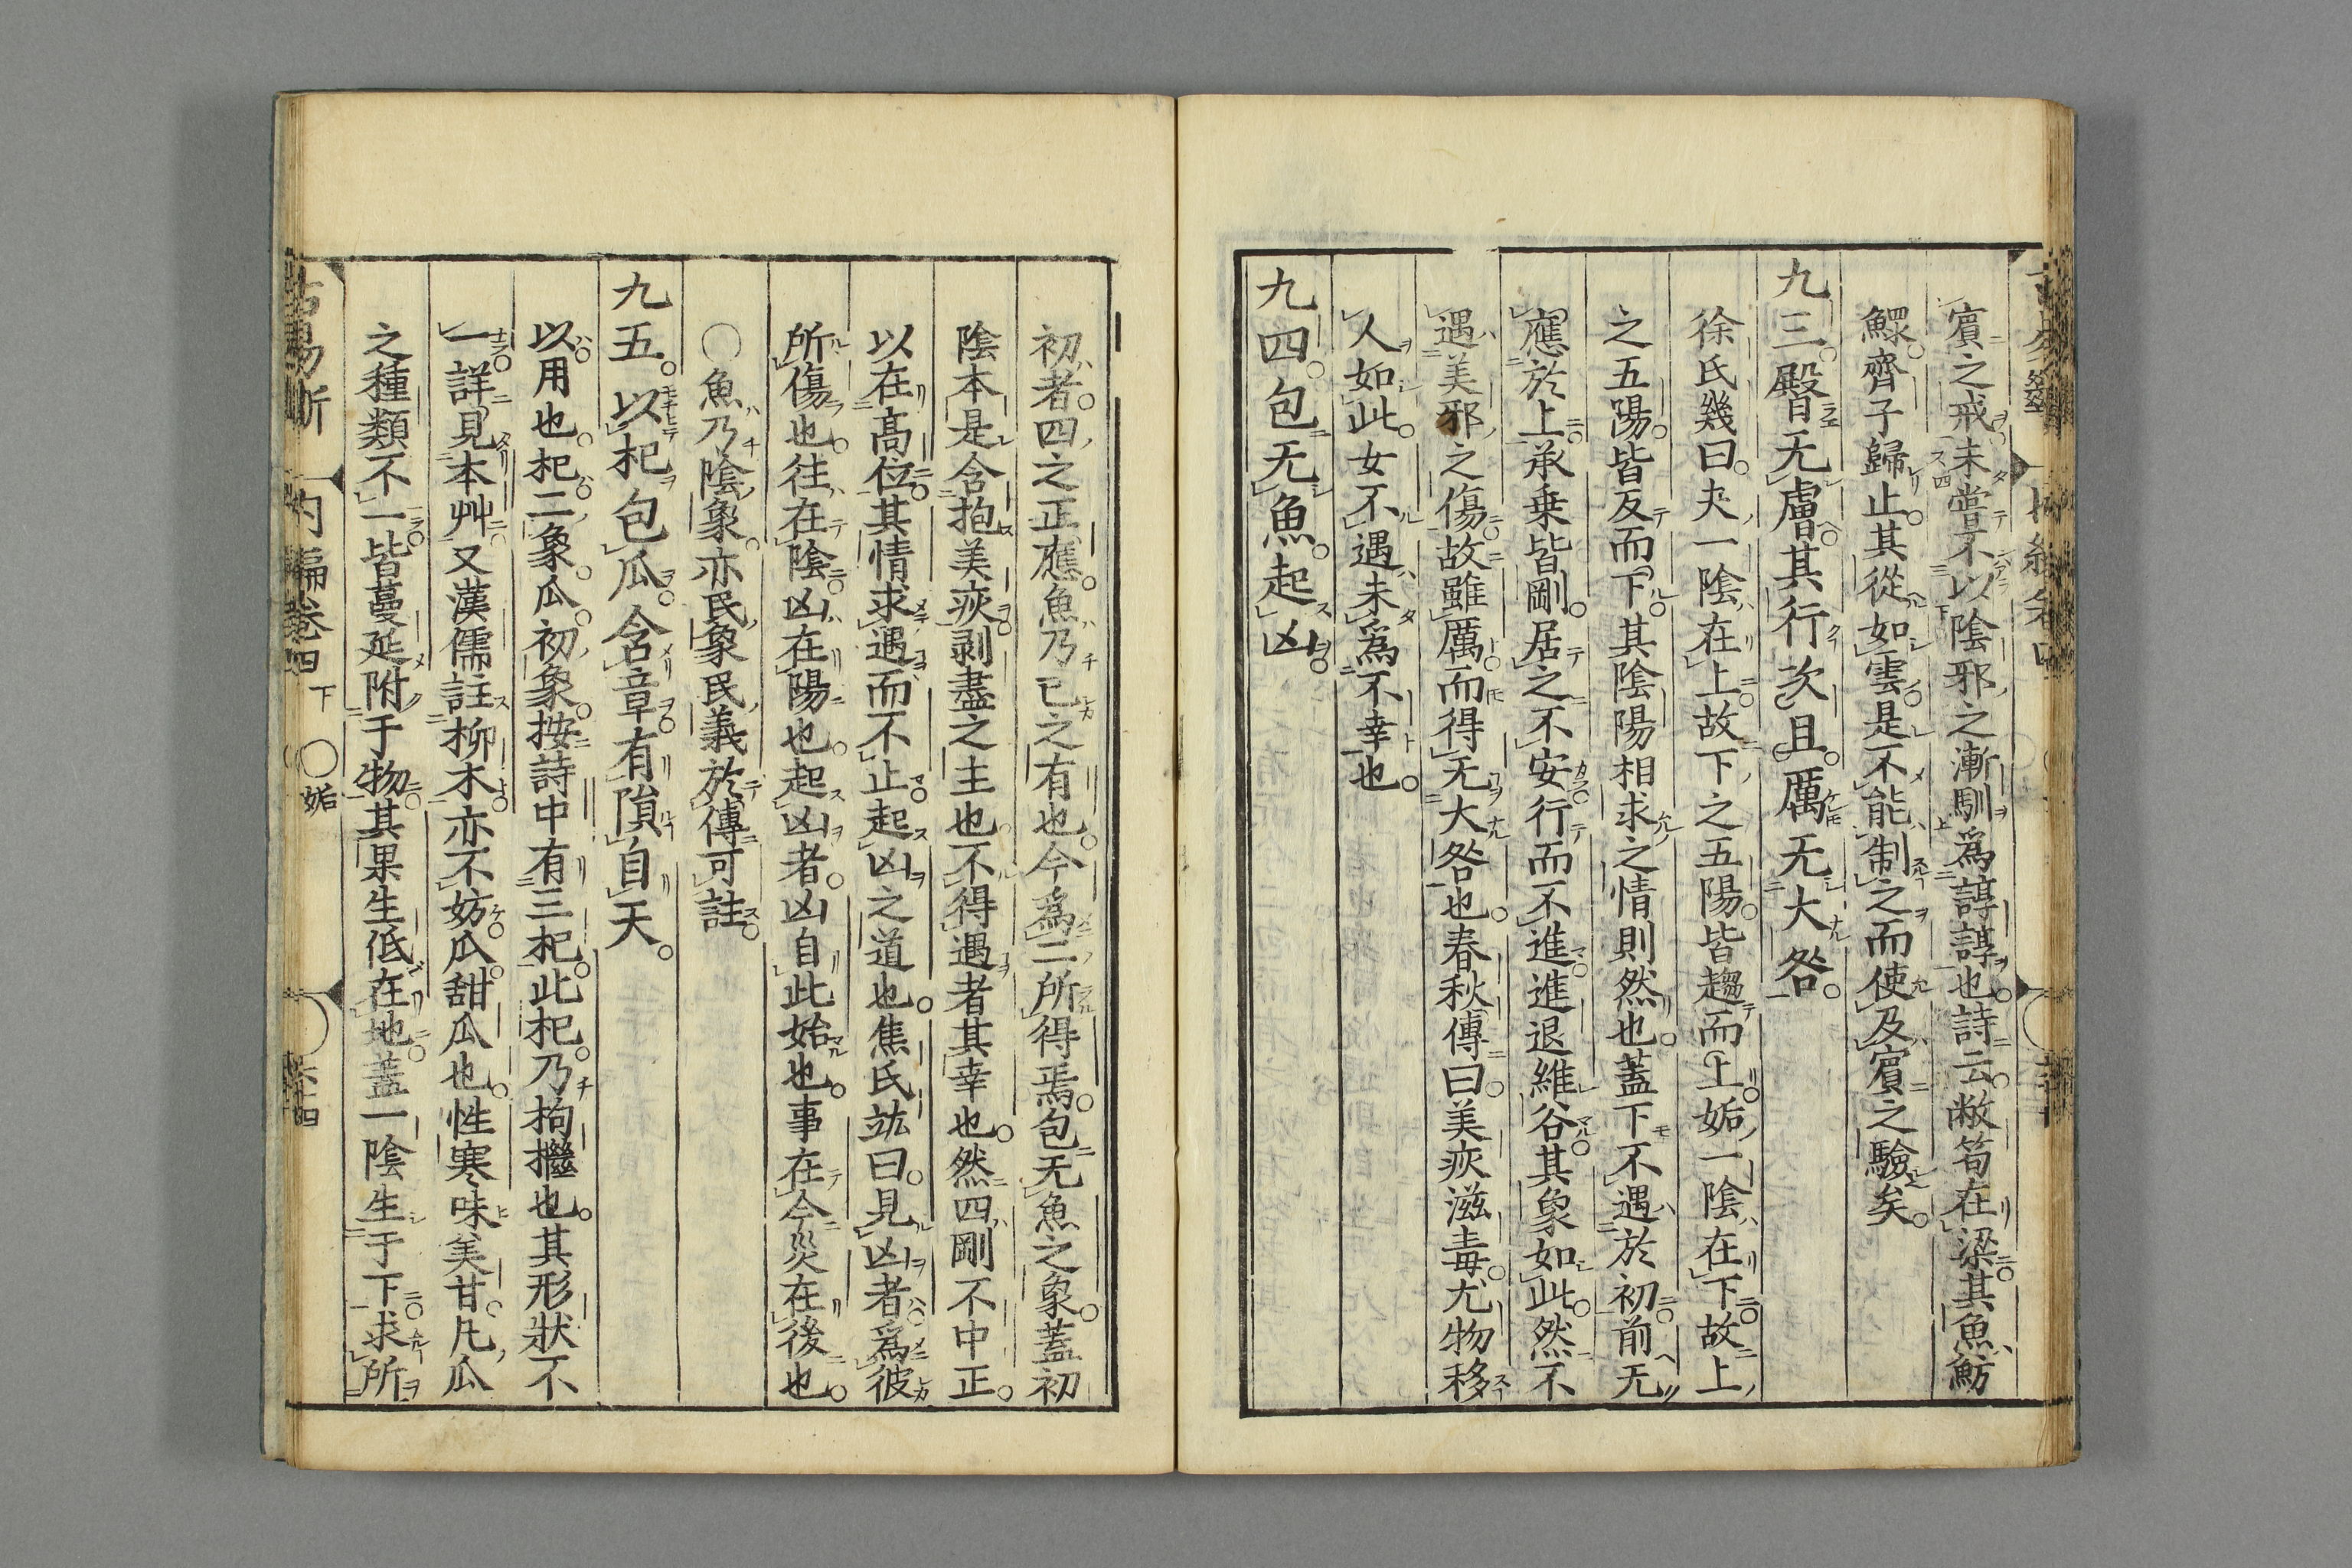 賓之戒未嘗不以陰邪之漸馴爲諄諄也詩云敝笱在梁其魚魴
鰥齊子歸止其從如雲是不能制之而使及賓之驗矣
九三臀无膚其行次且厲无大咎
徐氏幾曰夬一陰在上故下之五陽皆趨而上姤一陰在下故上
之五陽皆反而下其陰陽相求之情則然也蓋下不遇於初前无
應於上承乗皆剛居之不安行而不進進退維谷其象如此然不
遇美邪之傷故雖厲而得无大咎也春秋傳曰美疢滋毒尤物移
人如此女不遇未爲不幸也
九四包无魚起凶
初者四之正應魚乃已之有也今爲二所得焉包无魚之象蓋初
陰本是含抱美疢剥盡之主也不得遇者其幸也然四剛不中正
以在高位其情求遇而不止起凶之道也焦氏竑曰見凶者爲彼
所傷也往在陰凶在陽也起凶者凶自此始也事在今災在後也
○魚乃陰象亦民象民義於傳可註
九五以杞包瓜含章有隕自天
以用也杞二象瓜初象按詩中有三杞此杞乃枸檵也其形狀不
一詳見本艸又漢儒註柳木亦不妨瓜甜瓜也性寒味美甘凡瓜
之種類不一皆蔓延附于物其果生低在地蓋一陰生于下求所
古易斷
内編卷四
下
○姤
六十四